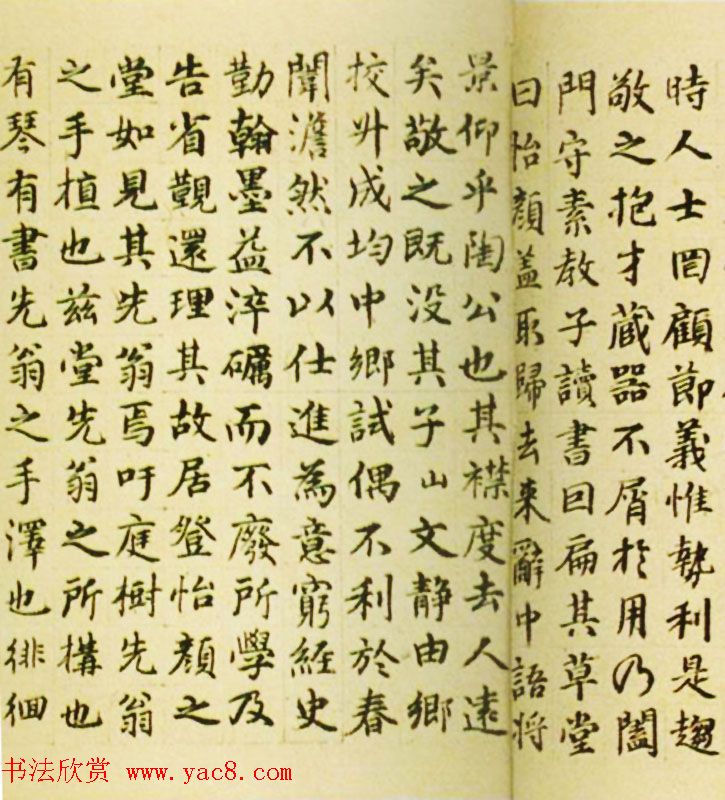 時人士罔顧節義惟勢利是趨
敬之抱才蔵器不屑扵用乃闔
門守素教子讀書因扁其草堂
曰怡顔盖取歸去来辭中語将
景仰乎陶公也其襟度去人逺
矣敬之既没其子山文静由鄉
挍升成均中鄉試偶不利於春
聞澹然不以仕進為意窮經史
勤翰墨益淬礪而不廢所學及
告省覲還理其故居登怡顔之
堂如見其先翁焉吁庭樹先翁
之手植也兹堂先翁之所構也
有琴有書先翁之手澤也徘徊
书法欣赏 www.yac8.com